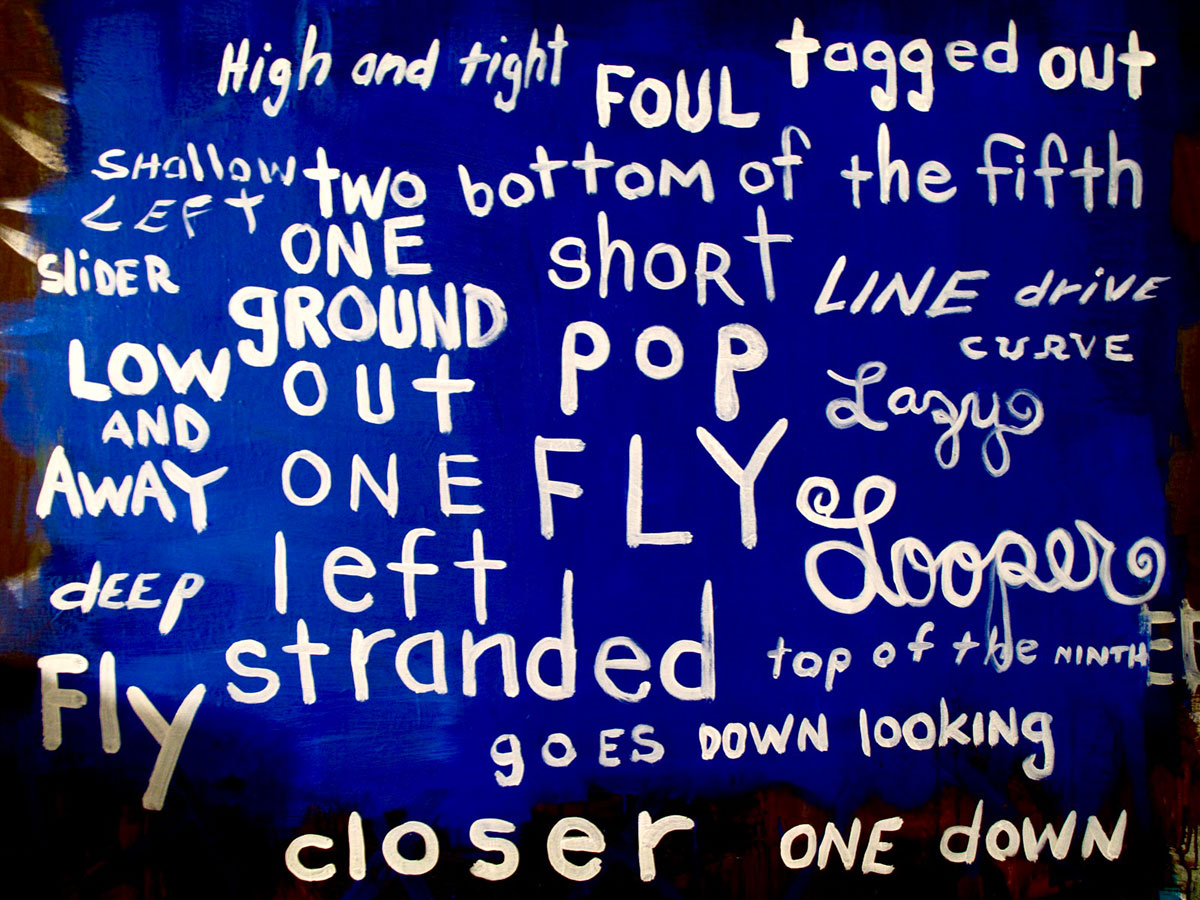 High and tight
FOUL
tagged out
SHallow
LEFT
two
bottom of the fifth
ONE
short
SLiDER
GROUND
LINE drive
CURVE
LOW
AND
AWAY
OUT
POP
Lazy
ONE
FLY
Looper
left
dEEp
stranded
top of the NINTH
Fly
goES DOWN looKING
closer
ONE dOWN